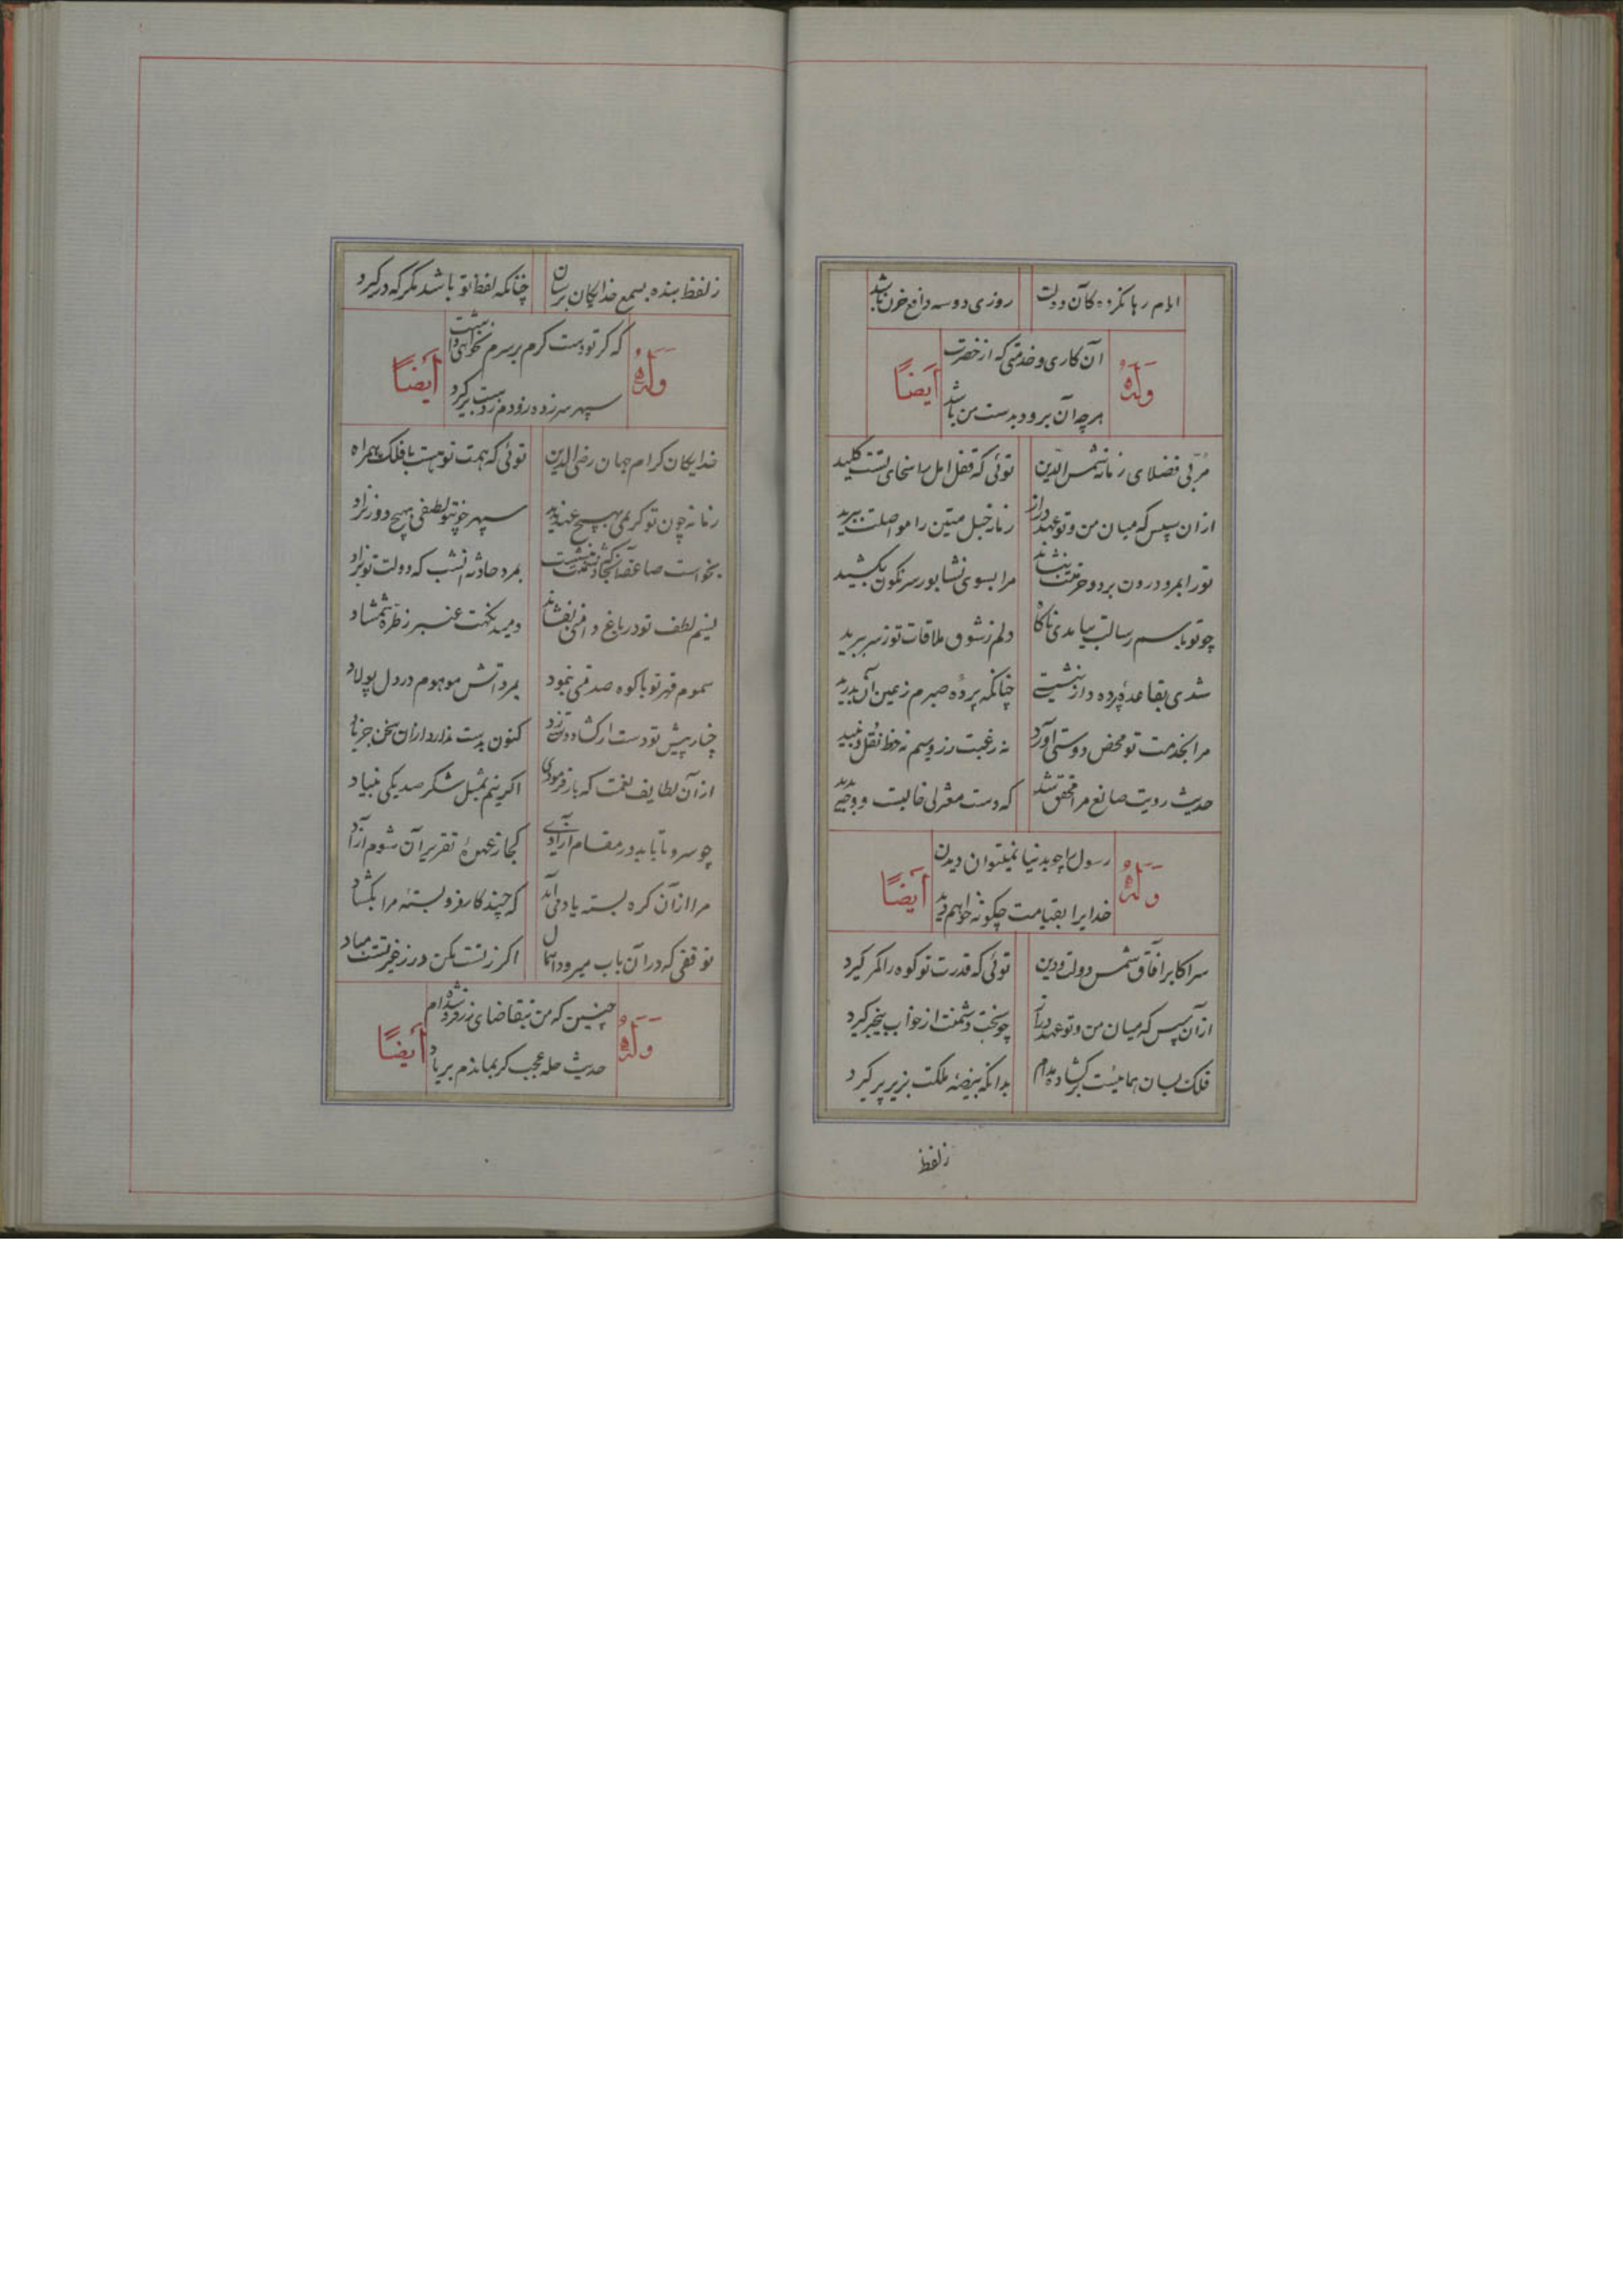 ایام رها نکرد کآن دولت روزی دو سه دافع حزن باشد
وله آن کاری و خدمتی که از حضرت ایضاً
هرچه آن برود بدست من باشد
مُربّی فضلای زمانه شمس الدین توئی که قفل امل را سخای تست کلید
ازان سپس که میان من و تو عهد دراز زمانه حبل متین مواصلت ببرید
تو را بمرو درون برد و حرمتت بنشاند مرا بسوی نشابور سرنگون بکشید
چو تو باسم رسالت بیامدی ناگاه دلم ز شوق ملاقات تو ز سر بپرید
شدی بقاعده پرده دار بنشستی چنانکه پردهٔ صبرم ز عین آن بدرید
مرا بخدمت تو محض دوستی آورد نه رغبت زر و سیم نه حظ نقل و نبید
حدیث رویت صانع مرا محقق شد که دست معتزلی خالیست
وله رسول را چو بدنیا نمیتوان دیدن ایضاً
خدایرا بقیامت چگونه خواهم دید
سر اکابر آفاق شمس دولت و دین توئی که قدرت تو کوه را کمر گیرد
ازآن سپس که میان من و تو عهد دراز چو بخت دشمنت از خواب بیخبر گیرد
فلک بسان همائیست برگشاده مدام بدانکه بیضهٔ ملکت بزیر پر گیرد
زلفظ
زلفظ بنده بسمع خدایگان برسان چنانکه لفظ تو باشد مگر که درگیرد
وله که گر تو دست کرم بر سرم نخواهی داشت ایضاً
سپهر سرزده زودم ز دست برگیرد
خدایگان کرام جهان رضی الدین توئی که همت تو هست با فلک همراه
زمانه چون تو کریمی بهیچ عهد ندید سپهر چو تو لطفی بهیچ دور نزاد
بخواست صاعقه بمرد حادثه آنشب که دولت تو بزاد
نسیم لطف تو در باغ دامنی بفشاند دمید نکهت عنبر ز طرهٔ شمشاد
سموم قهر تو با کوه صدمتی بنمود بمرد آتش موهوم در دل پولاد
چنار پیش تو دست ار گشاده کنون بدست ندارد ازان سخن جز باد
از آن لطایف نعمت که بازفرمودی اگر بنم بمثل شکر صد یکی بنیاد
چو سرو تا باید در مقام آزادی کجا ز عهدهٔ تقریر آن شوم آزاد
مرا ازآن گره بسته یاد می آید که چند کار فرو بسته مرا بگشاد
توقفی که در آن باب میرود امسال اگر ز تست مکن ور ز غیر تست مباد
وله چنین که من بتقاضای زر فرو شده ام ایضاً
حدیث حله عجب گر بماندم بر یاد